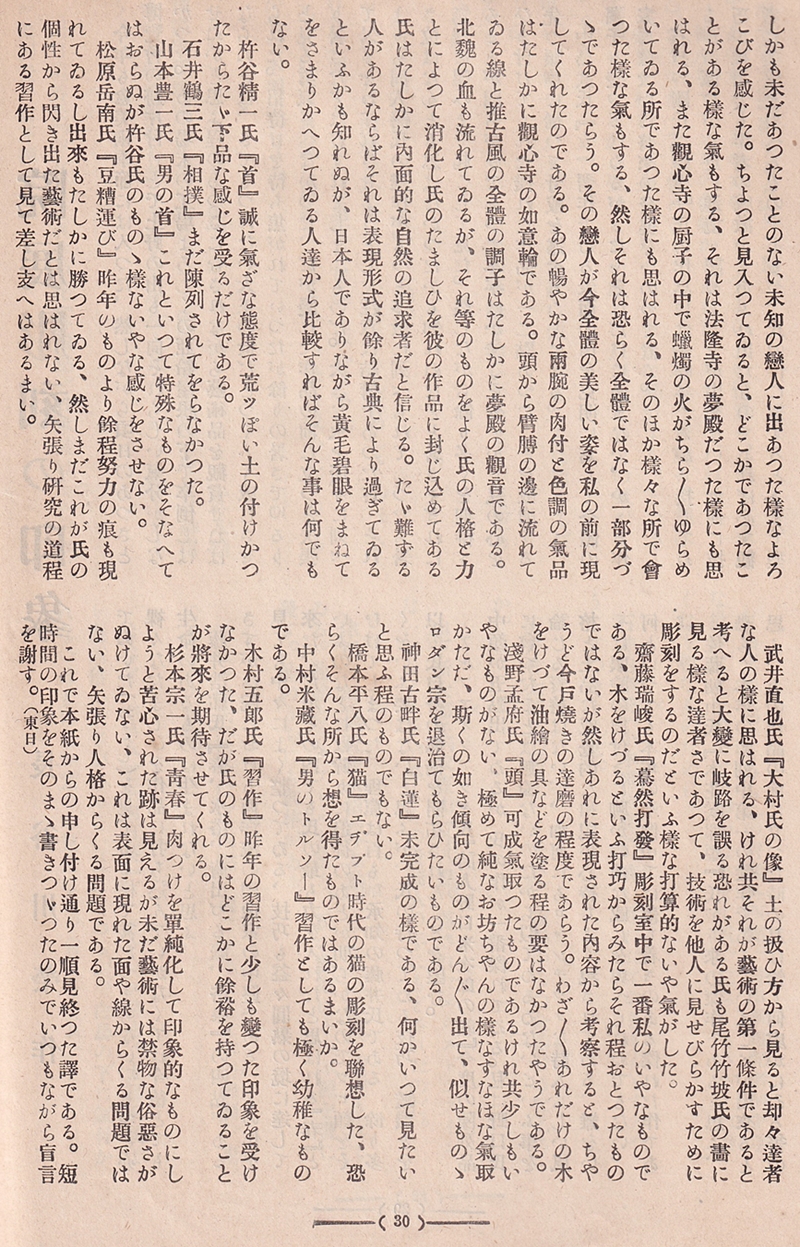 しかも未だあつたことのない未知の戀人に出あつた樣なよろ
こびを感じた。ちよつと見入つてゐると、どこかであつたこ
とがある樣な氣もする、それは法隆寺の夢殿だつた樣にも思
はれる、また觀心寺の厨子の中で蠟燭の火がちら〱ゆらめ
いてゐる所であつた樣にも思はれる、そのほか樣々な所で會
つた樣な氣もする、然しそれは恐らく全體ではなく一部分づ
ゝであつたらう。その戀人が今全體の美しい姿を私の前に現
してくれたのである。あの暢やかな兩腕の肉付と色調の氣品
はたしかに觀心寺の如意輪である。頭から臂膊の邊に流れて
ゐる線と推古風の全體の調子はたしかに夢殿の觀音である。
北魏の血も流れてゐるが、それ等のものをよく氏の人格と力
とによつて消化し氏のたましひを彼の作品に封じ込めてある
氏はたしかに内面的な自然の追求者だと信じる。たゞ難ずる
人があるならばそれは表現形式が餘り古典により過ぎてゐる
といふかも知れぬが、日本人でありながら黃毛碧眼をまねて
をさまりかへつてゐる人達から比較すればそんな事は何でも
ない。
杵谷精一氏『首』誠に氣ざな態度で荒ッぽい土の付けかつ
たからたゞ下品な感じを受るだけである。
石井鶴三氏『相撲』まだ陳列されてをらなかつた。
山本豊一氏『男の首』これといつて特殊なものをそなへて
はおらぬが杵谷氏のものゝ樣ないやな感じをさせない。
松原岳南氏『豆糟運び』昨年のものより餘程努力の痕も現
れてゐるし出來もたしかに勝つてゐる、然しまだこれが氏の
個性から閃き出た藝術だとは思はれない、矢張り研究の道程
にある習作として見て差し支へはあるまい。
武井直也氏『大村氏の像』土の扱ひ方から見ると却々達者
な人の樣に思はれる、けれ共それが藝術の第一條件であると
考へると大變に岐路を誤る恐れがある氏も尾竹竹坡氏の畵に
見る樣な達者さであつて、技術を他人に見せびらかすために
彫刻をするのだといふ樣な打算的ないや氣がした。
齋藤瑞峻氏『驀然打發』彫刻室中で一番私のいやなもので
ある、木をけづるといふ打巧からみたらそれ程おとつたもの
ではないが然しあれに表現された内容から考察すると、ちや
うど今戸燒きの達磨の程度であらう。わざ〱あれだけの木
をけづて油繪の具などを塗る程の要はなかつたやうである。
淺野孟府氏『頭』可成氣取つたものであるけれ共少しもい
やなものがない、極めて純なお坊ちやんの樣なすなほな氣取
かただ、斯くの如き傾向のものがどん〲出て、似せものゝ
ロダン宗を退治てもらひたいものである。
神田古畔氏『白蓮』未完成の樣である、何かいつて見たい
と思ふ程のものでもない。
橋本平八氏『猫』エヂプト時代の猫の彫刻を聯想した、恐
らくそんな所から想を得たものではあるまいか。
中村米藏氏『男のトルソー』習作としても極く幼稚なもの
である。
木村五郎氏『習作』昨年の習作と少しも變つた印象を受け
なかつた、だが氏のものにはどこかに餘裕を持つてゐること
が將來を期待させてくれる。
杉本宗一氏『靑春』肉つけを單純化して印象的なものにし
ようと苦心された跡は見えるが未だ藝術には禁物な俗惡さが
ぬけてゐない、これは表面に現れた面や線からくる問題では
ない、矢張り人格からくる問題である。
これで本紙からの申し付け通り一順見終つた譯である。短
時間の印象をそのまゝ書きつゞつたのみでいつもながら盲言
を謝す。(東日)
( 30 )